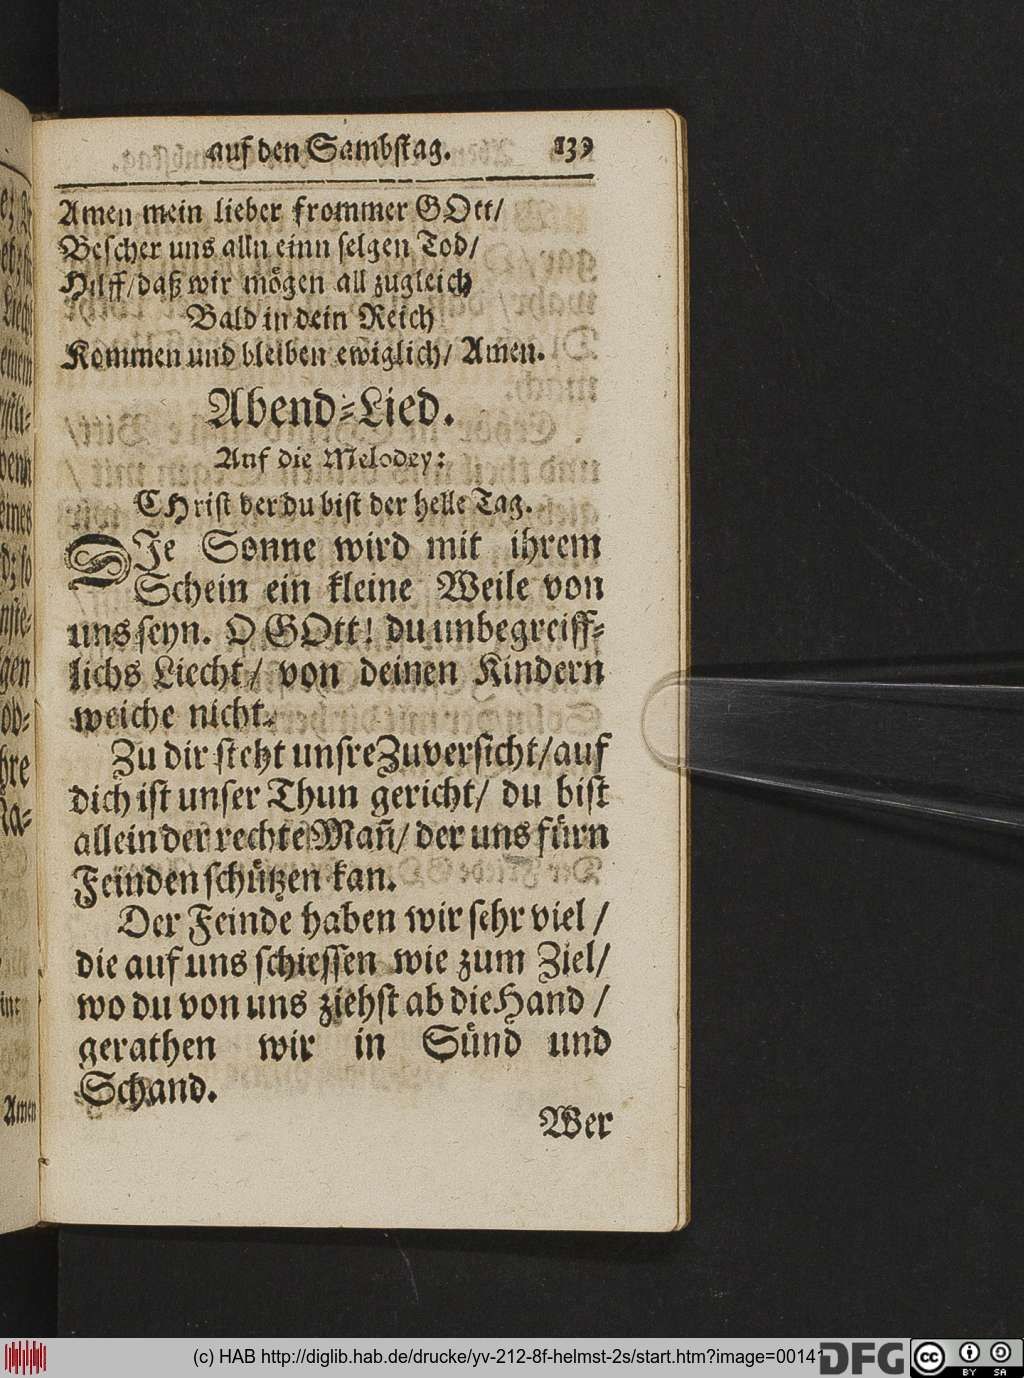 auf den Sambstag. 139
Amen mein lieber frommer GOtt/
Bescher uns alln einn selgen Tod/
Hilff/ daß wir mögen all zugleich
Bald in dein Reich
Kommen und bleiben ewiglich/ Amen.
Abend-Lied.
Auf die Melodey:
CHrist der du bist der helle Tag.
DIe Sonne wird mit ihrem
Schein ein kleine Weile von
uns seyn. O GOtt! du unbegreiff-
lichs Liecht/ von deinen Kindern
weiche nicht.
Zu dir steht unsre Zuversicht/ auf
dich ist unser Thun gericht/ du bist
allein der rechte Mañ/ der uns fürn
Feinden schützen kan.
Der Feinde haben wir sehr viel/
die auf uns schiessen wie zum Ziel/
wo du von uns ziehst ab die Hand/
gerathen wir in Sünd und
Schand.
Wer
Amen
(c) HAB http://diglib.hab.de/drucke/yv-212-8f-helmst-2s/start.htm?image=00141
DFG
cc BY SA